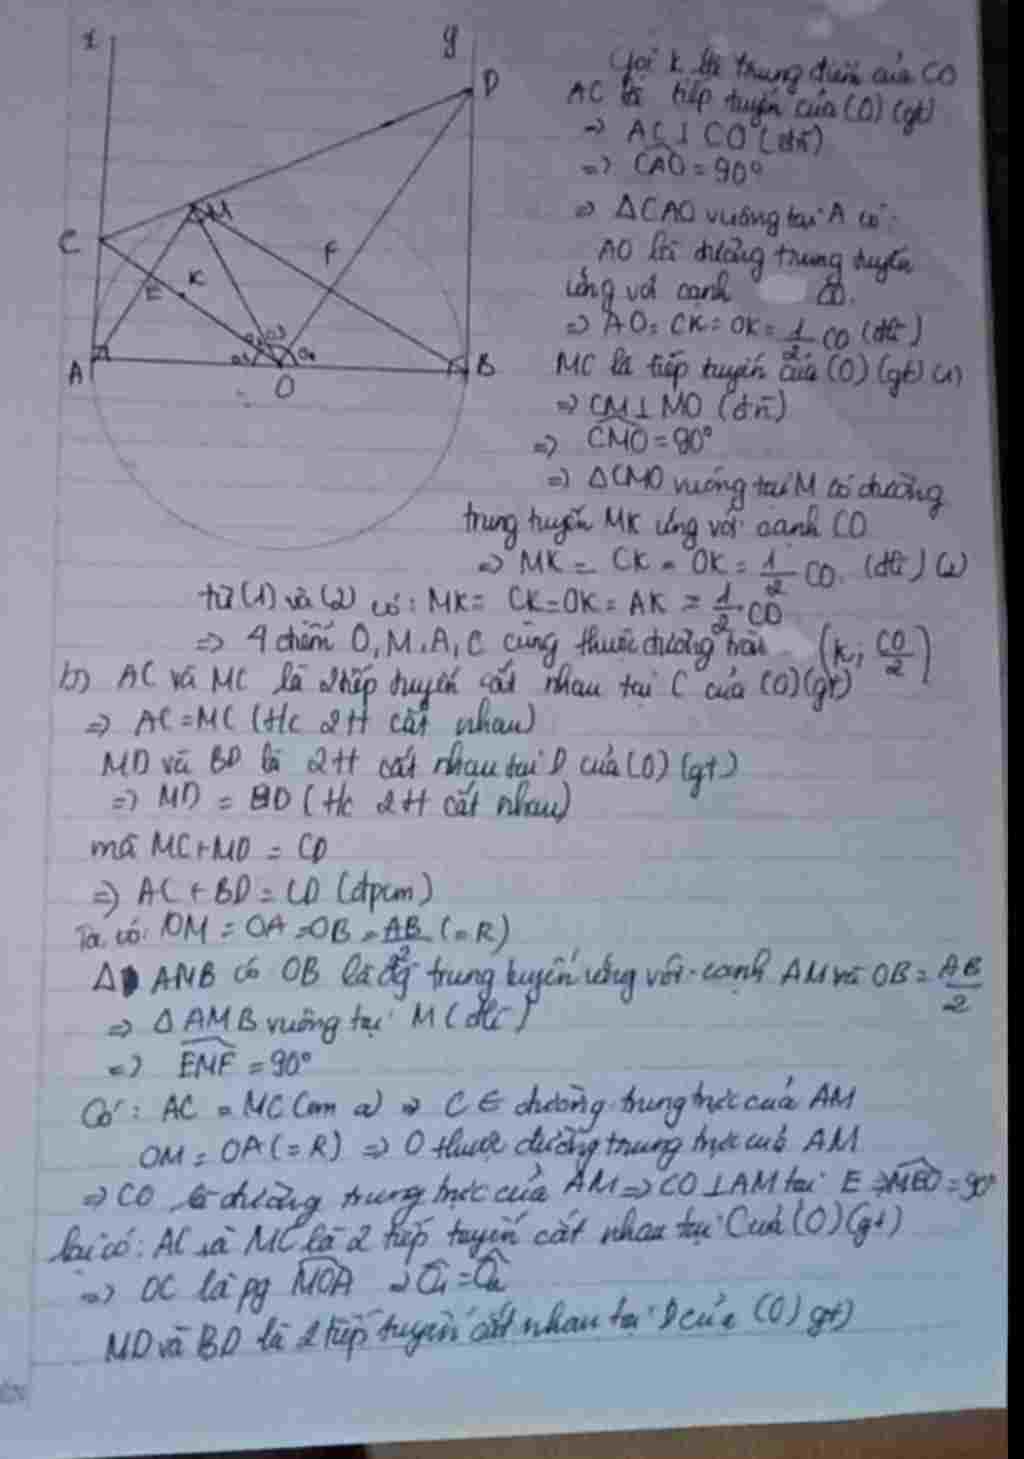 x
y
D
C
M
E
K
F
A
O
B
Gọi K là trung điểm của CO
AC là tiếp tuyến của (O) (gt)
=> AC ⊥ CO (đn)
=> CAO = 90°
=> ΔCAO vuông tại A có:
AO là đường trung tuyến
ứng với cạnh CO.
=> AO = CK = OK = 1/2 CO (đlí)
MC là tiếp tuyến của (O) (gt) (1)
=> CM ⊥ MO (đn)
=> CMO = 90°
=> ΔCMO vuông tại M có đường
trung tuyến MK ứng với cạnh CO
=> MK = CK = OK = 1/2 CO. (đlí) (2)
từ (1) và (2) có: MK = CK = OK = AK = 1/2 CO
=> 4 điểm O, M, A, C cùng thuộc đường tròn (K; CO/2)
b) AC và MC là 2 tiếp tuyến cắt nhau tại C của (O) (gt)
=> AC = MC (t/c 2tt cắt nhau)
MD và BD là 2tt cắt nhau tại D của (O) (gt)
=> MD = BD (t/c 2tt cắt nhau)
mà MC + MD = CD
=> AC + BD = CD (đpcm)
Ta có: OM = OA = OB = AB/2 (= R)
Δ AMB có OB là đg trung tuyến ứng với cạnh AM và OB = AB/2
=> Δ AMB vuông tại M (đlí)
=> EMF = 90°
Có: AC = MC (cm a) => C ∈ đường trung trực của AM
OM = OA (= R) => O thuộc đường trung trực của AM
=> CO là đường trung trực của AM => CO ⊥ AM tại E => MEO = 90°
lại có: AC và MC là 2 tiếp tuyến cắt nhau tại C của (O) (gt)
=> OC là pg MOA => O1 = O2
MD và BD là 2 tiếp tuyến cắt nhau tại D của (O) gt)